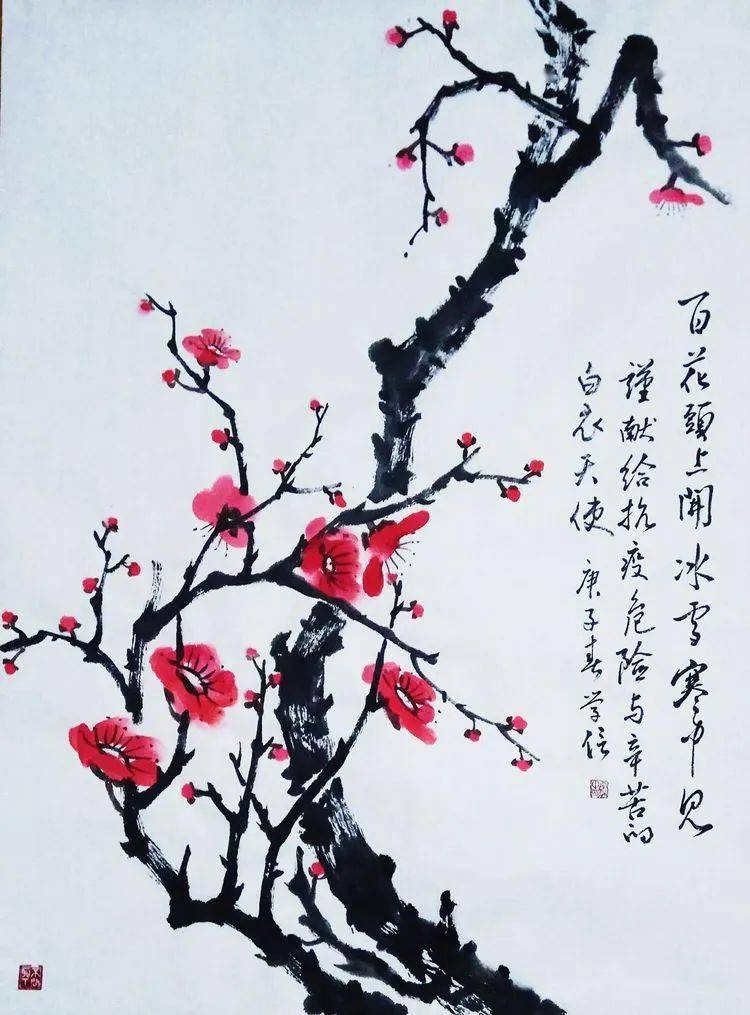 百花頭上開冰雪寒中見
謹献给抗疫危险与辛苦的
白衣天使 庚子春学信